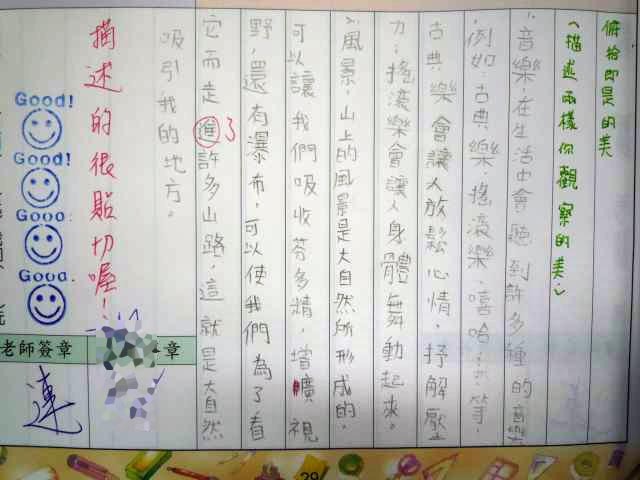 俯拾即是的美
(描述兩樣你觀察的美。)
音樂,在生活中會聽到許多種的音樂
,例如:古典樂、搖滾樂、嘻哈…等等,
古典樂會讓人放鬆心情,抒解壓
力;搖滾樂會讓人身體舞動起來。
風景,山上的風景是大自然所形成的,
可以讓我們吸收芬多精,增廣視
野,還有瀑布,可以使我們為了看
它而走進了許多山路,這就是大自然
吸引我的地方。
描述的很貼切喔!
Good!
Good!
Good!
Good!
老師簽章
章
連
29